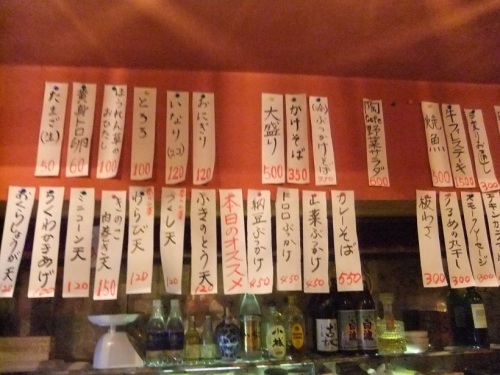 たまご(生)
50
黄身卜ロ卵
60
ほうれん草の
おひたし
100
とろろ
100
いなり(2コ)
120
おにぎり
120
大盛り
500
かけそば
350
(冷)ぶっかけそば
陶cafe野菜サラダ
500
焼魚
500
牛フィレステーキ
500
300
おくらじょうが天
ちくわかきあげ
ミニコーン天
120
きのこ
肉巻き天
150
120
120
ふきのとう天
120
本日のオススメ
納豆ぶっかけ
450
トロロぶっかけ
450
山菜ぶっかけ
450
カレーそば
550
板わさ
300
うるめの丸干し
300
スモークソーセージ
300